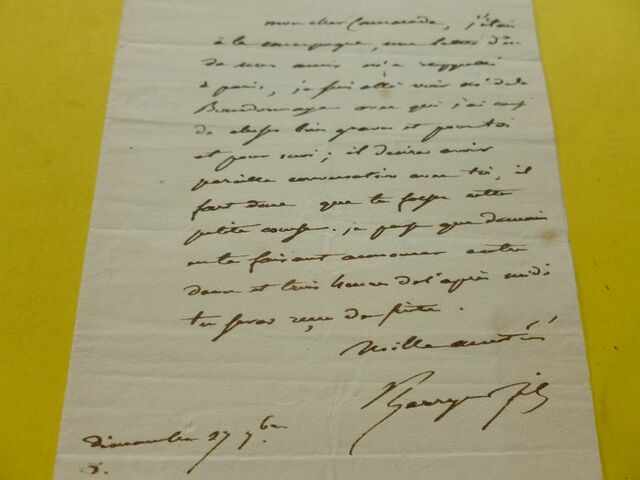 mon cher Camarade, j'étais
à la campagne, une lettre d'un
de mes amis m'a rappellé
à paris, je suis allé voir Mr de la
Bourdonnaye avec qui j'ai causé
de choses bien graves et pour toi
et pour moi; il désire avoir
pareille conversation avec toi, il
faut donc que tu fasses cette
petite course. je pense que demain
en te faisant annoncer entre
deux et trois heures de l'après midi
tu seras reçu de suite.
Mille amitiés
fils
dimanche 27 7bre